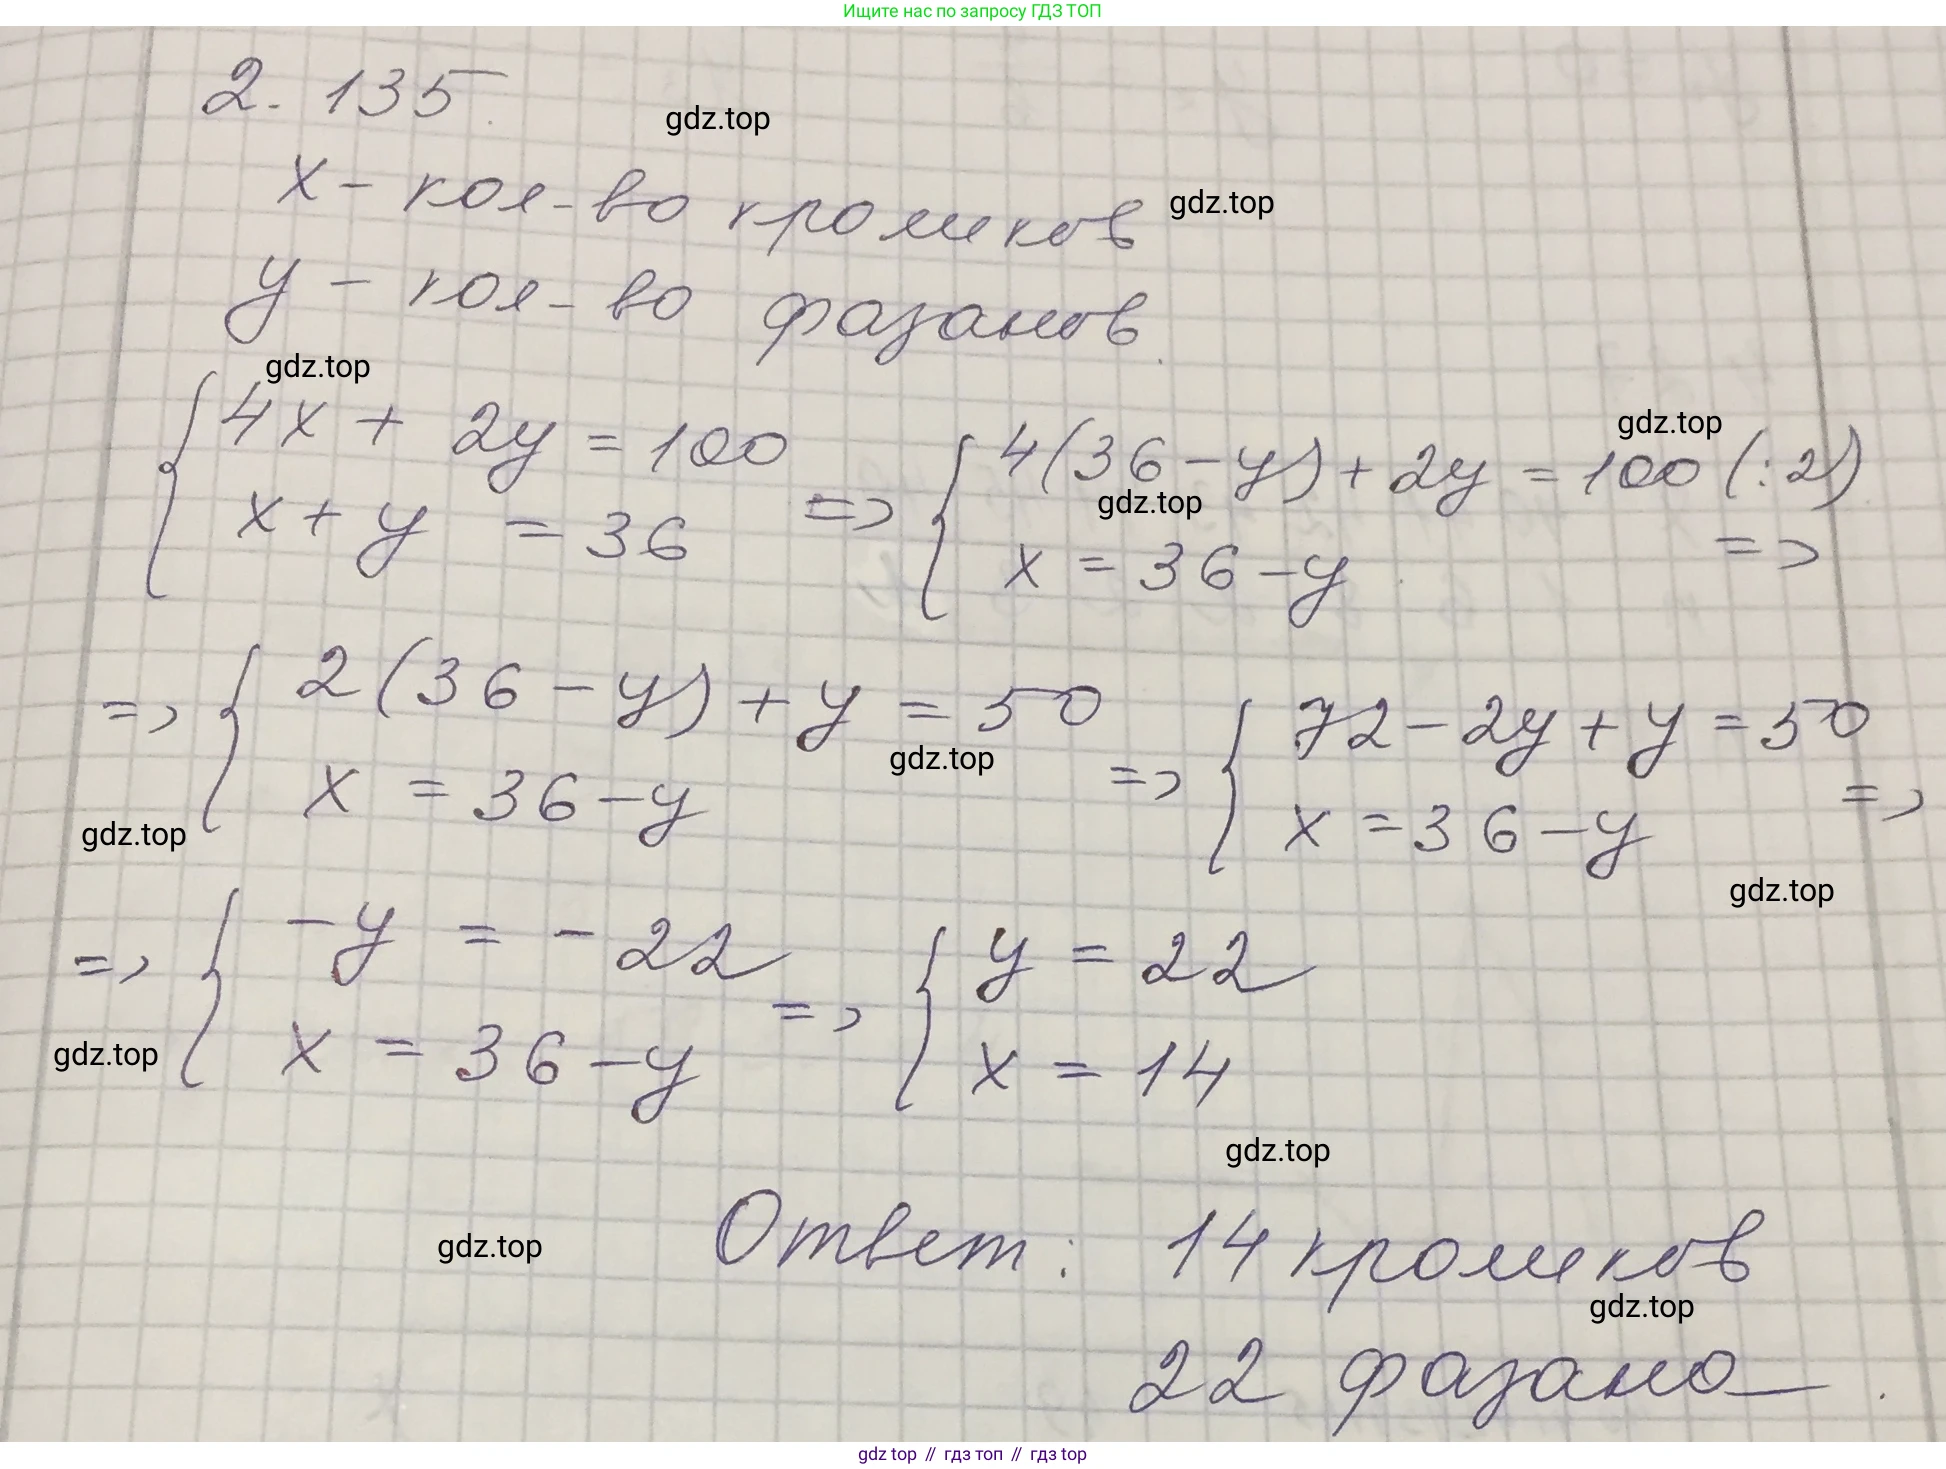 Ищите нас по запросу ГДЗ ТОП
2. 135.
gdz.top
x - кол-во кроликов
gdz.top
y - кол-во фазанов.
gdz.top
{ 4x + 2y = 100
x + y = 36
=> { 4(36-y) + 2y = 100 (:2)
x = 36 - y
=>
gdz.top
gdz.top
=> { 2(36-y) + y = 50
x = 36 - y
=> { 72 - 2y + y = 50
x = 36 - y
=>
gdz.top
gdz.top
gdz.top
=> { -y = -22
x = 36 - y
=> { y = 22
x = 14
gdz.top
gdz.top
Ответ: 14 кроликов
gdz.top
gdz.top
22 фазана.
gdz top // гдз топ // гдз top